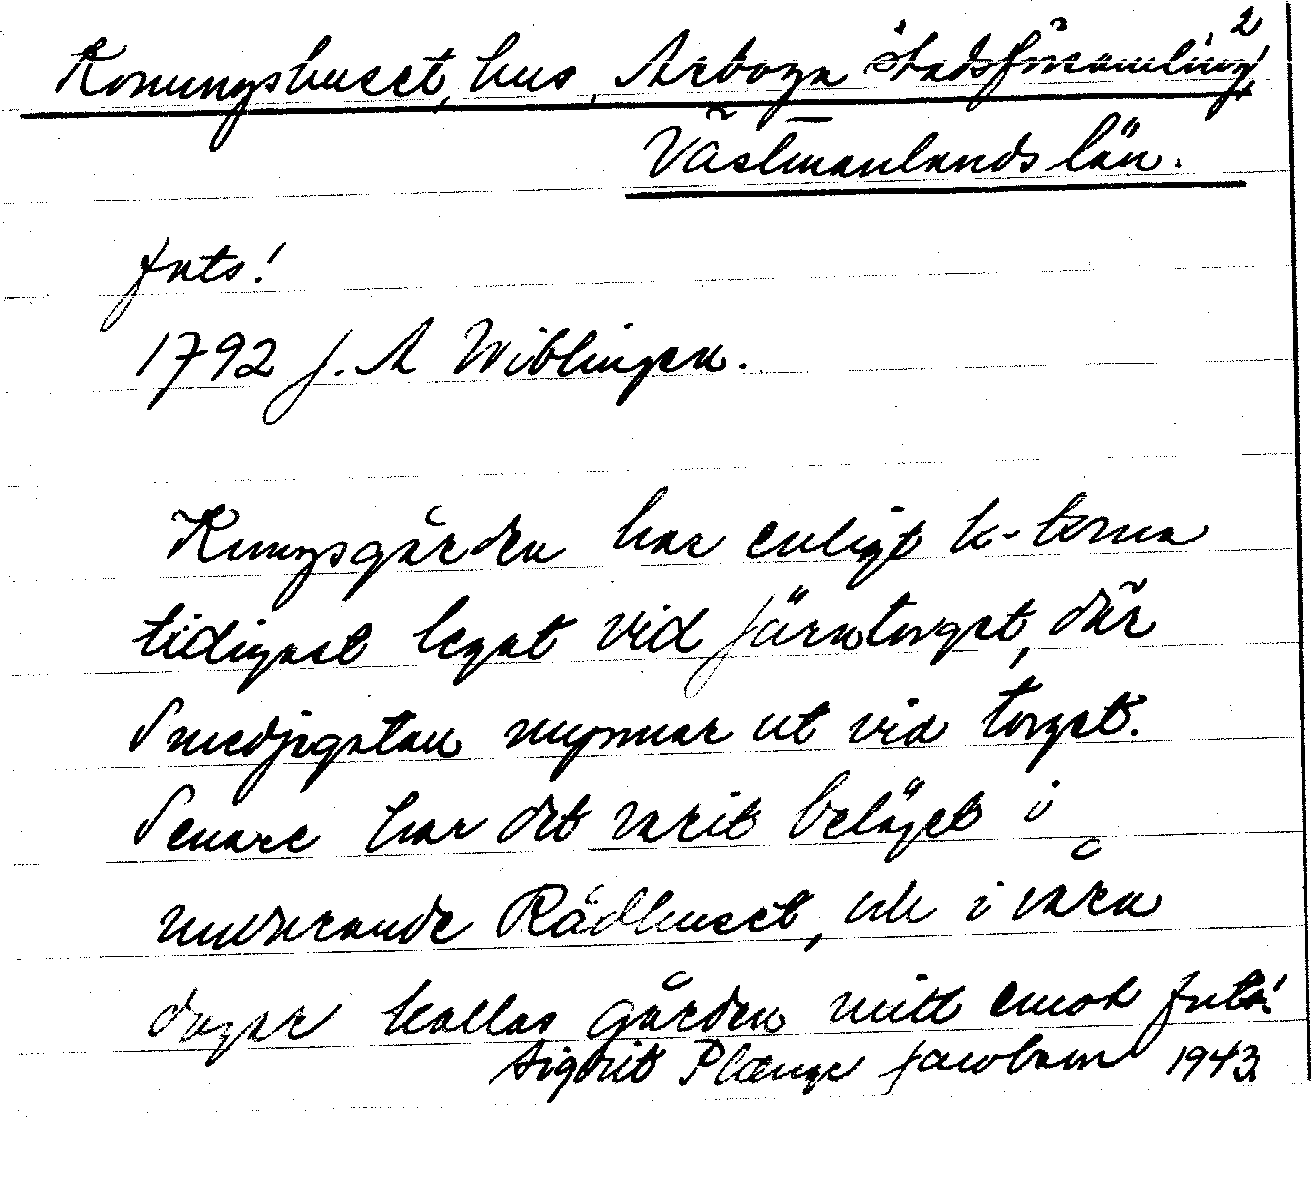 2
Konungshuset, hus, Arboga stadsförsamling,
Västmanlands län.
forts!
1792 J. A Wiblingen.
Kungsgården har enligt k-torna
tidigast legat vid Järntorget, där
Smedjegatan mynnar ut vid torget.
Senare har det varit beläget i
nuvarande Rådhuset, och i våra
dagar kallas gården mitt emot forts!
Sigrid Plænge Jacobson 1943.